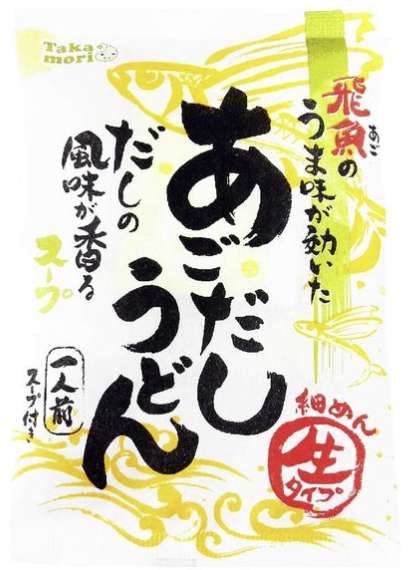 Taka
mori
飛魚の
あご
うま味が効いた
あごだし
うどん
だしの
風味が香る
スープ
一人前
スープ付き
細めん
生
タイプ